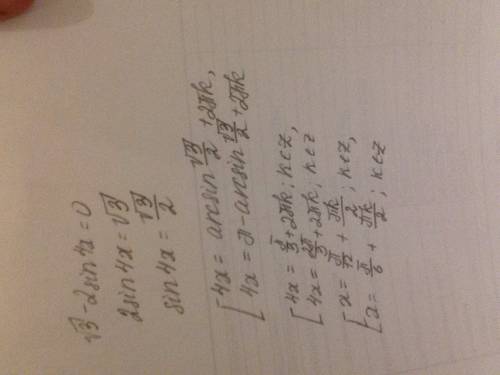 √3 - 2sin4x = 0
2sin4x = √3
sin4x = √3/2
[ 4x = arcsin √3/2 + 2πk,
[ 4x = π - arcsin √3/2 + 2πk
[ 4x = π/3 + 2πk; k∈z,
[ 4x = 2π/3 + 2πk; k∈z
[ x = π/12 + πk/2; k∈z,
[ x = π/6 + πk/2; k∈z